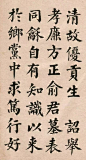 清故優貢生　詔舉
孝廉方正俞君墓表
同穌自有知識以来
於鄉黨中求篤行好